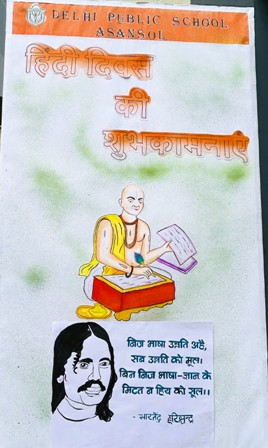 DELHI PUBLIC SCHOOL
ASANSOL
हिंदी दिवस
की
शुभकामनाएँ
निज भाषा उन्नति अहै,
सब उन्नति को मूल।
बिन निज भाषा-ज्ञान के
मिटत न हिय को सूल।।
- भारतेंदु हरिश्चन्द्र